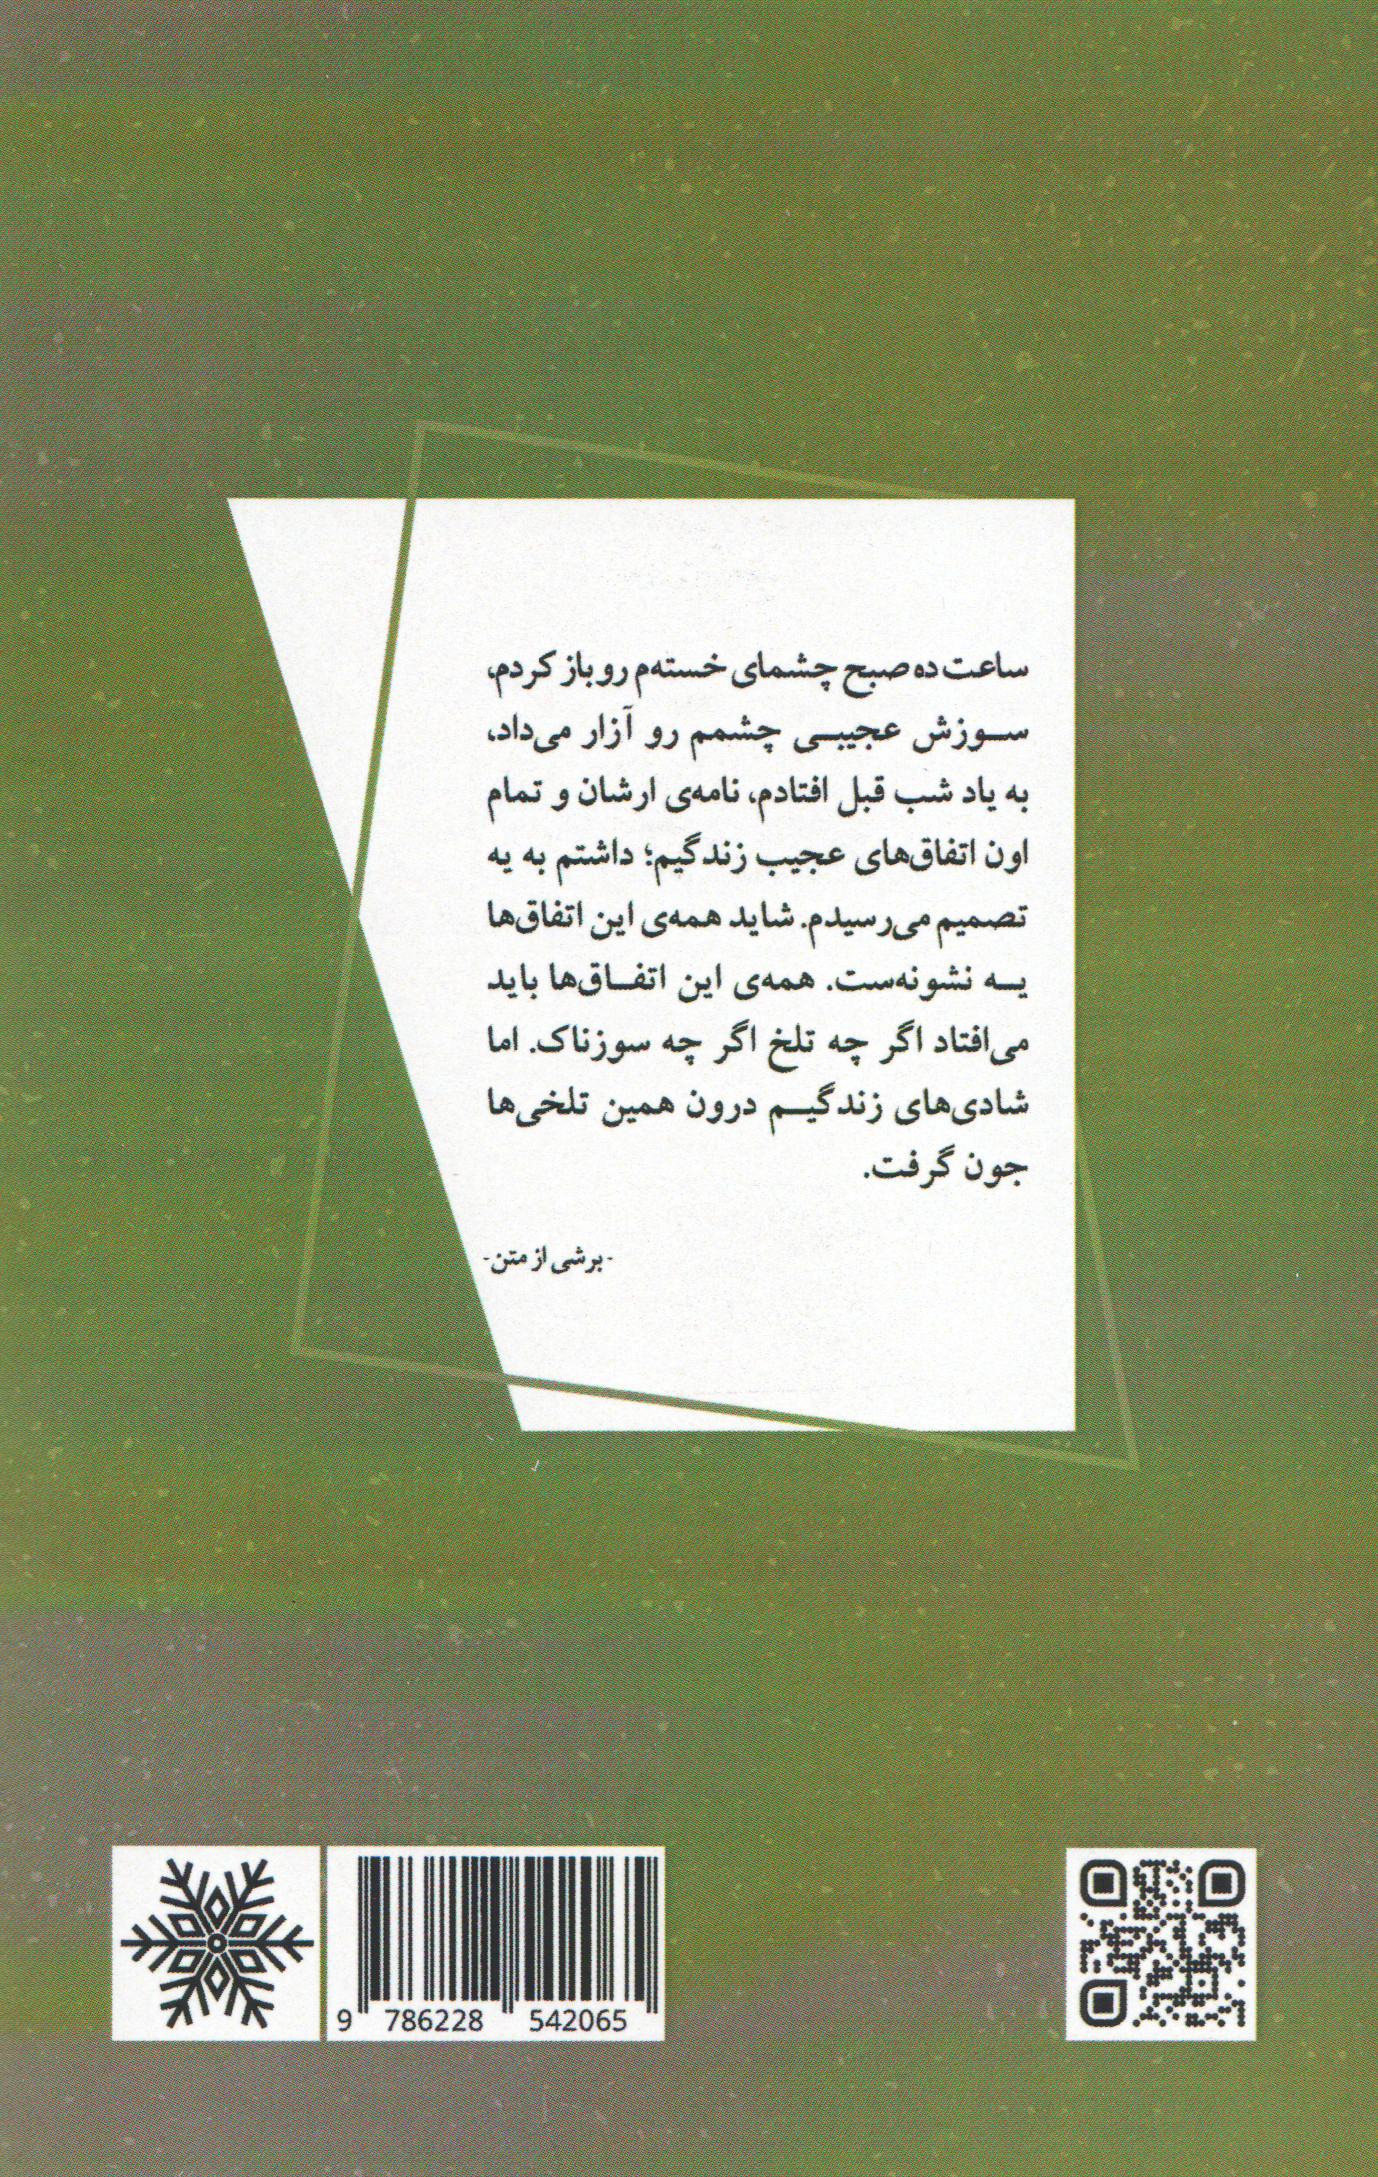 ساعت ده صبح چشمای خسته‌م رو باز کردم،
سوزش عجیبی چشمم رو آزار می‌داد،
به یاد شب قبل افتادم، نامه‌ی ارشان و تمام
اون اتفاق‌های عجیب زندگیم؛ داشتم به یه
تصمیم می‌رسیدم. شاید همه‌ی این اتفاق‌ها
یه نشونه‌ست. همه‌ی این اتفاق‌ها باید
می‌افتاد اگر چه تلخ اگر چه سوزناک. اما
شادی‌های زندگیم درون همین تلخی‌ها
جون گرفت.
-برشی از متن-
9 786228 542065